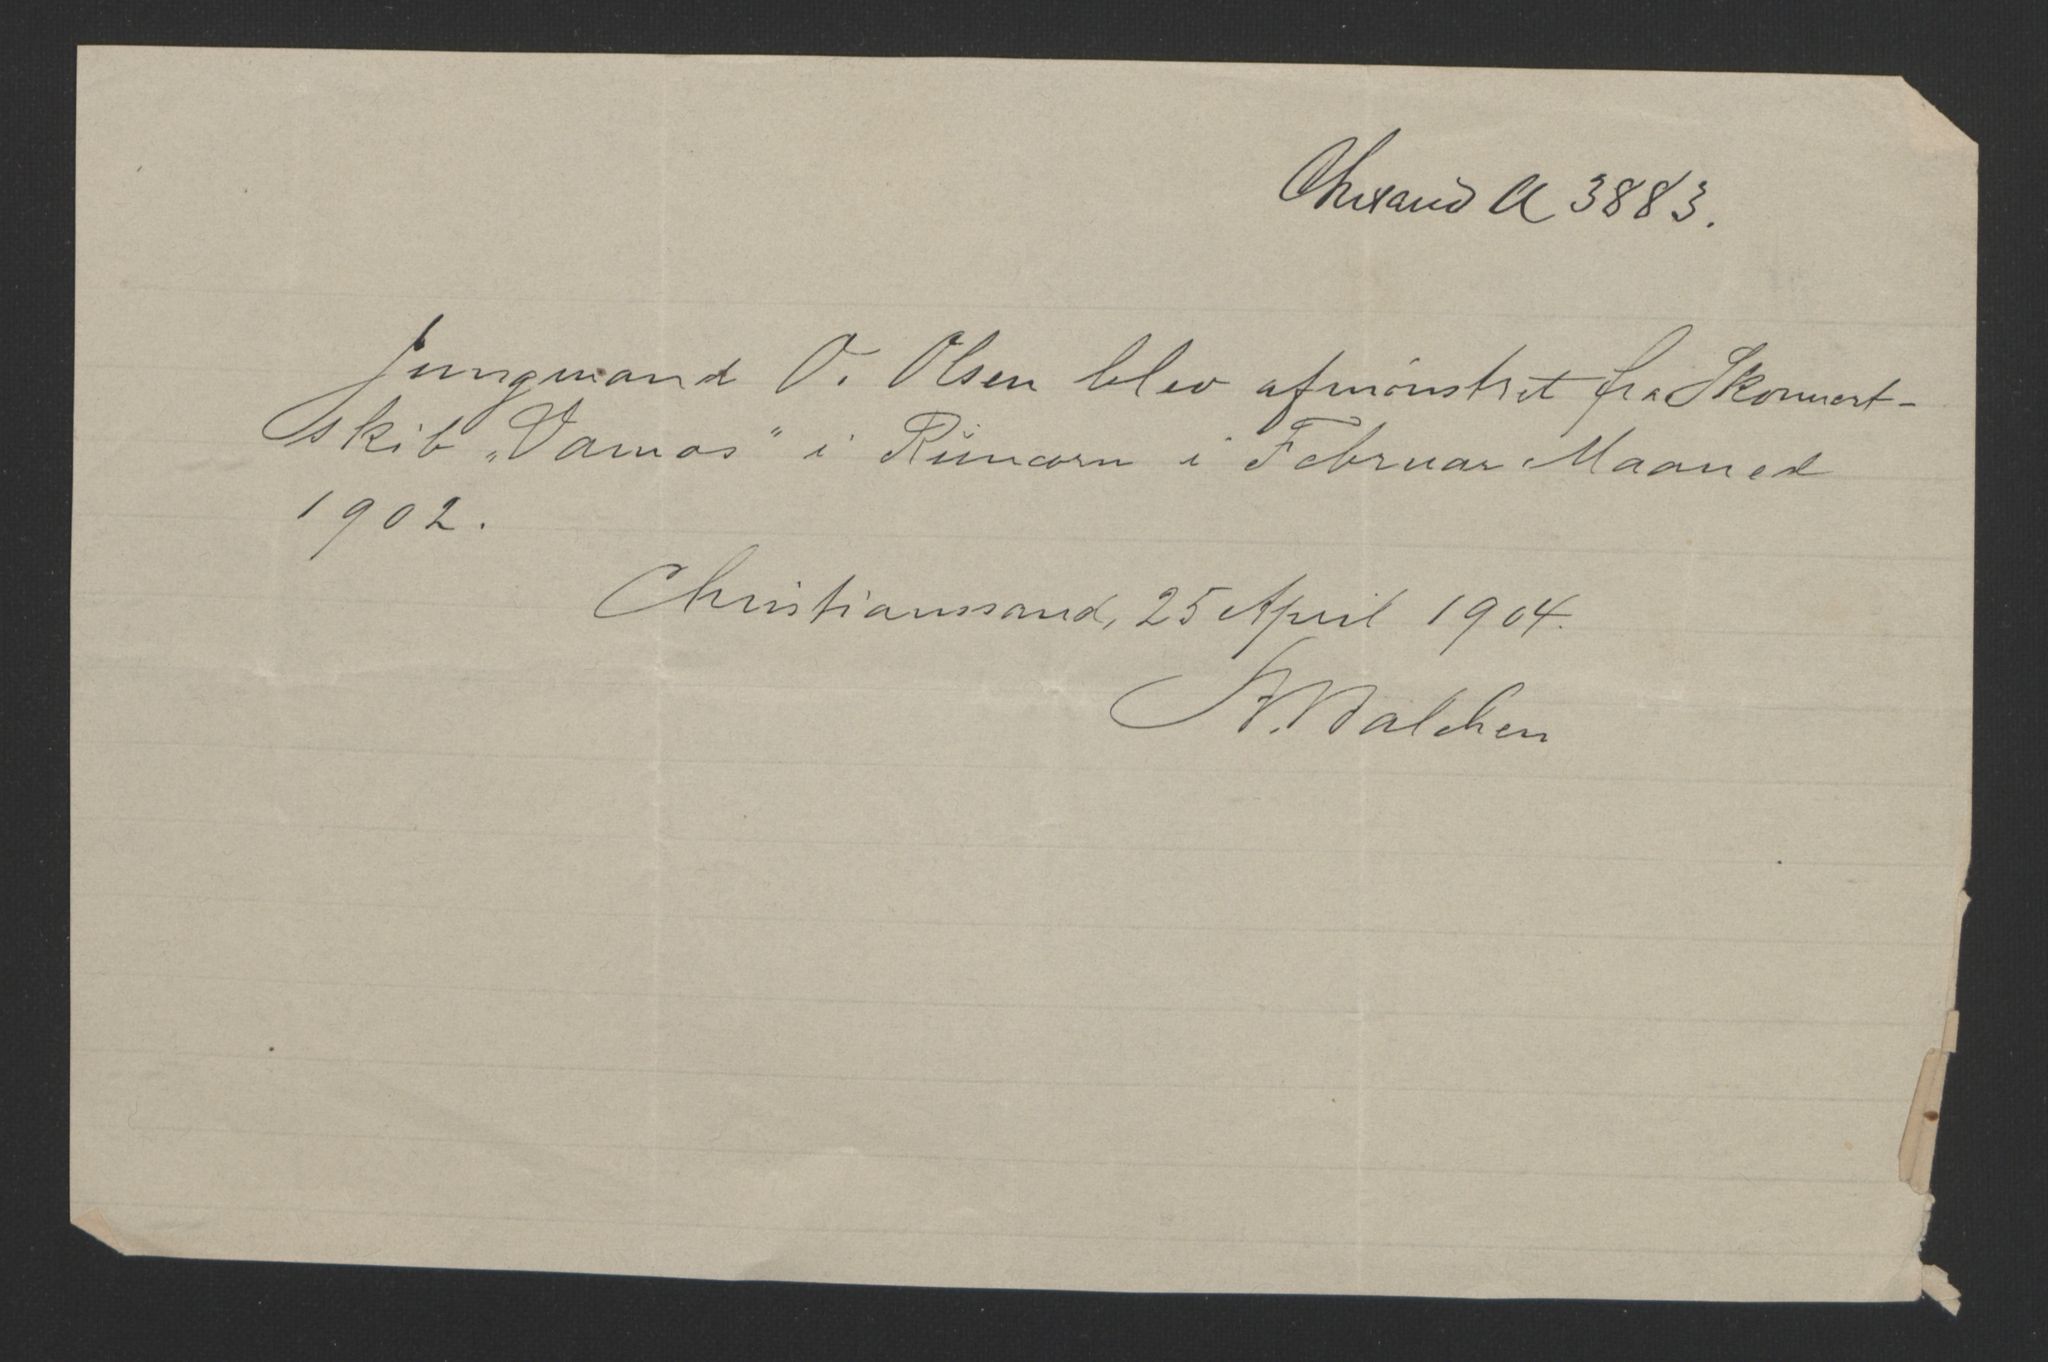 Chrsand A 3883.
Jungmand O. Olsen blev afmönstret fra Skonnert-
skib „Vamos" i Runcorn i Februar Maaned
1902.
Christianssand, 25 April 1904.
Balchen